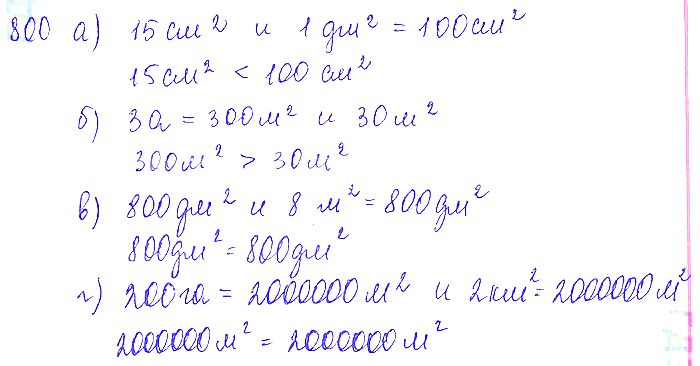 800 а) 15 см² и 1 дм² = 100 см²
15 см² < 100 см²
б) 3а = 300 м² и 30 м²
300 м² > 30 м²
в) 800 дм² и 8 м² = 800 дм²
800 дм² = 800 дм²
г) 200 га = 2000000 м² и 2 км² = 2000000 м²
2000000 м² = 2000000 м²